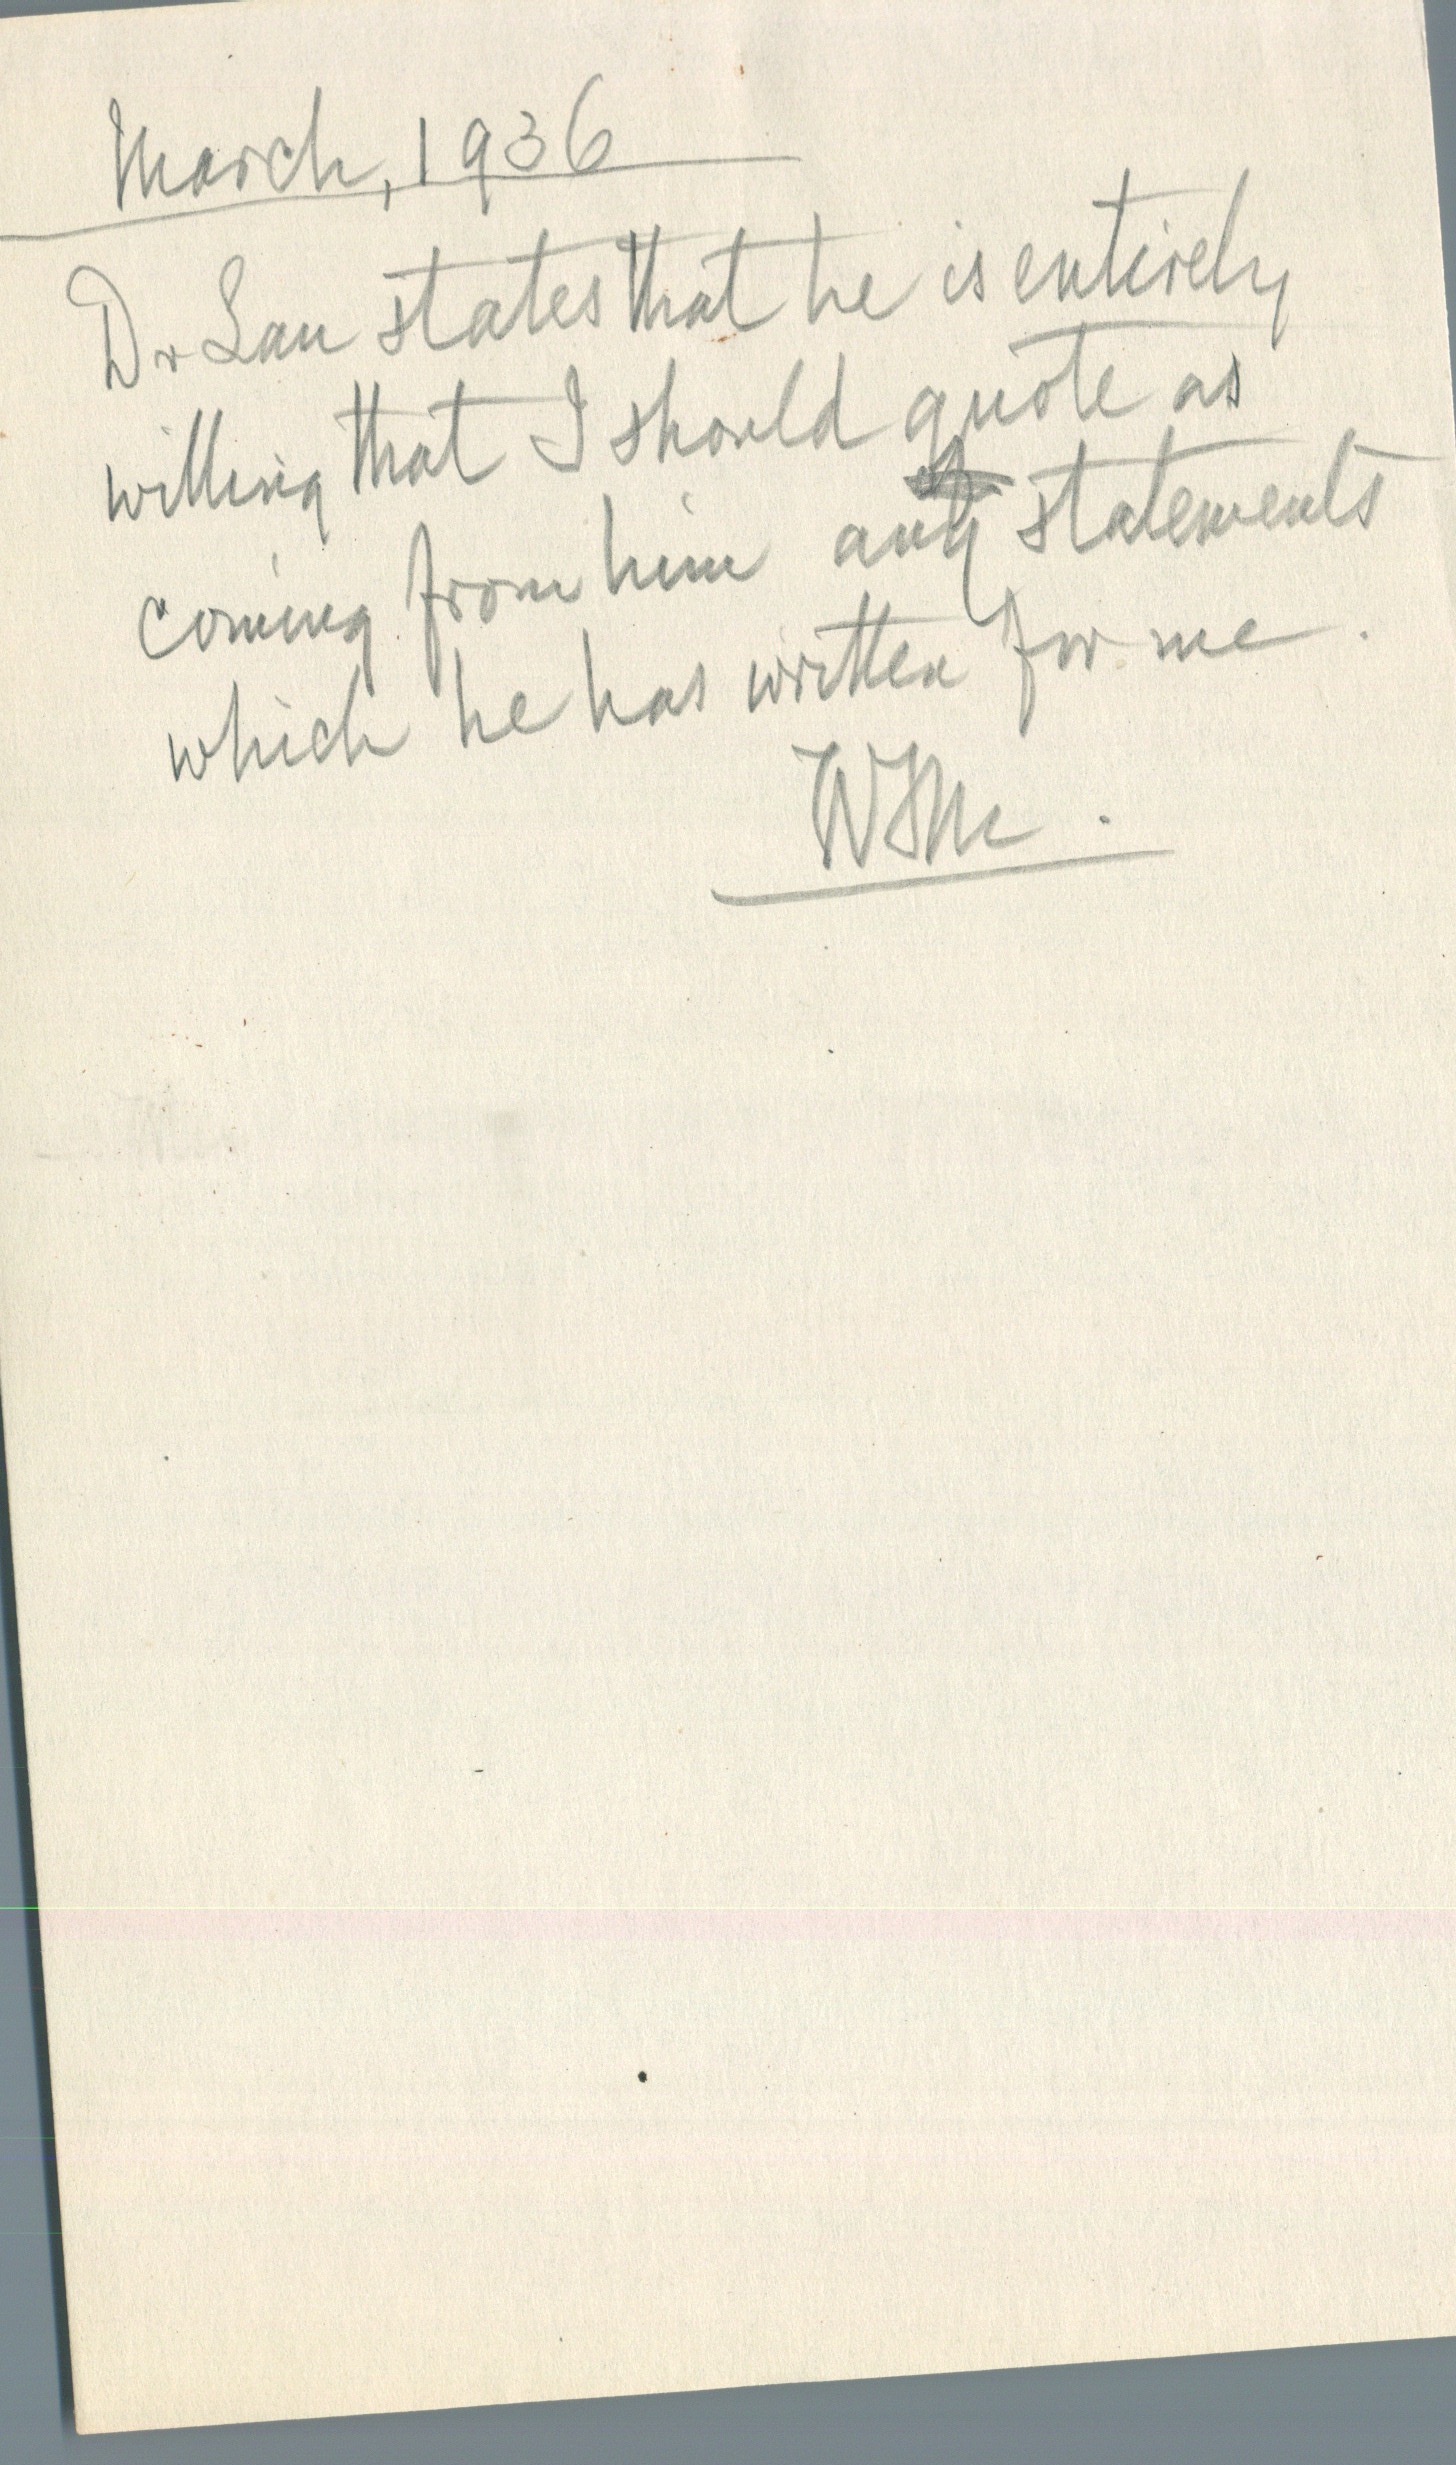 March, 1936
Dr Lau states that he is entirely
willing that I should quote as
coming from him any statements
which he has written for me.